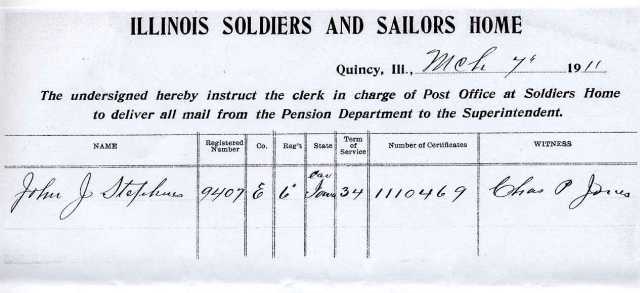 ILLINOIS SOLDIERS AND SAILORS HOME
Quincy, Ill., Mch 7" 1911
The undersigned hereby instruct the clerk in charge of Post Office at Soldiers Home
to deliver all mail from the Pension Department to the Superintendent.
NAME Registered Number Co. Reg't State Term of Service Number of Certificates WITNESS
John J Stephens 9407 E 6" Cav Iowa 34 1110469 Chas P Jones